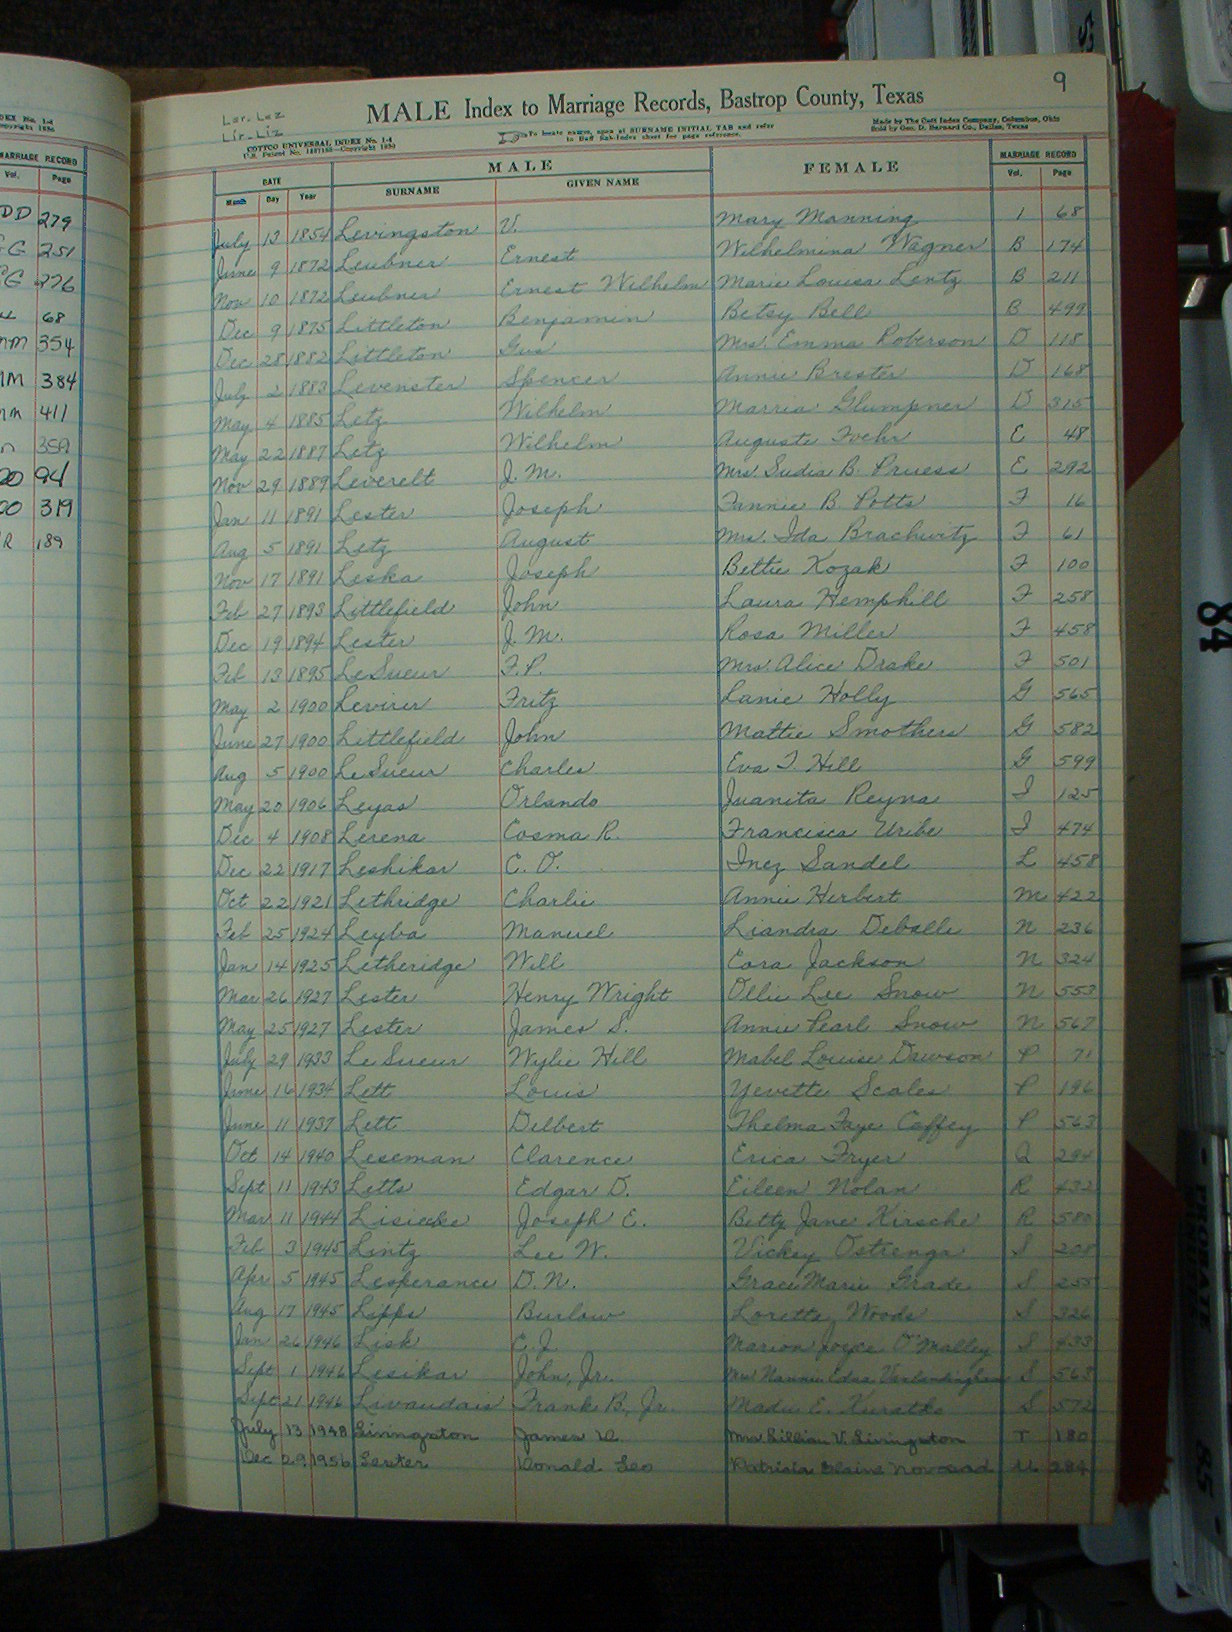 9
Ler. Lez
Lir-Liz
MALE Index to Marriage Records, Bastrop County, Texas
COTTCO UNIVERSAL INDEX No. 1-4
To locate names, open at SURNAME INITIAL TAB and refer
to Buff Sub-Index sheet for page reference.
Made by The Cott Index Company, Columbus, Ohio
Sold by Geo. D. Barnard Co., Dallas, Texas
DATE MALE FEMALE MARRIAGE RECORD
Month Day Year SURNAME GIVEN NAME Vol. Page
July 13 1854 Levingston V. Mary Manning 1 68
June 9 1872 Leubner Ernest Wilhelmina Wagner B 174
Nov 10 1872 Leubner Ernest Wilhelm Marie Louisa Lentz B 211
Dec 9 1875 Littleton Benjamin Betsy Bell B 499
Dec 28 1882 Littleton Gus Mrs. Emma Roberson D 118
July 2 1883 Levenster Spencer Annie Brester D 168
May 4 1885 Letz Wilhelm Marria Glumpner D 315
May 22 1887 Letz Wilhelm Auguste Foehr E 48
Nov 29 1889 Leverelt J. M. Mrs. Sudia B. Pruess E 292
Jan 11 1891 Lester Joseph Fannie B. Potts F 16
Aug 5 1891 Letz August Mrs. Ida Brachwitz F 61
Nov 17 1891 Leska Joseph Bettie Kozak F 100
Feb 27 1893 Littlefield John Laura Hemphill F 258
Dec 19 1894 Lester J. M. Rosa Miller F 458
Feb 13 1895 LeSueur F. P. Mrs. Alice Drake F 501
May 2 1900 Levirer Fritz Lanie Holly G 565
June 27 1900 Littlefield John Mattie Smothers G 582
Aug 5 1900 LeSueur Charles Eva T. Hill G 599
May 20 1906 Leyas Orlando Juanita Reyna I 125
Dec 4 1908 Lerena Cosma R. Francisca Uribe I 474
Dec 22 1917 Leshikar C. O. Inez Sandel L 458
Oct 22 1921 Lethridge Charlie Annie Herbert M 422
Feb 25 1924 Leyba Manuel Liandra Debolle N 236
Jan 14 1925 Letheridge Will Eora Jackson N 324
Mar 26 1927 Lester Henry Wright Ollie Lee Snow N 553
May 25 1927 Lester James S. Annie Pearl Snow N 567
July 29 1933 LeSueur Wylie Hill Mabel Louise Dawson P 71
June 16 1934 Lett Louis Yevette Scales P 196
June 11 1937 Lett Delbert Thelma Faye Coffey P 563
Oct 14 1940 Leseman Clarence Erica Fryer Q 294
Sept 11 1943 Letts Edgar D. Eileen Nolan R 432
Mar 11 1944 Lisiecke Joseph E. Betty Jane Kirsche R 580
Feb 3 1945 Lintz Lee W. Vickey Ostrenga S 208
Apr 5 1945 Lesperance D. N. Grace Marie Grade S 255
Aug 17 1945 Lipps Burlow Loretta Woods S 326
Jan 26 1946 Lisk C. J. Marion Joyce O'Malley S 433
Sept 1 1946 Lesikar John, Jr. Mrs Nannie Edna Vanlandingham S 563
Sept 21 1946 Livaudais Frank B., Jr. Madie E. S 572
July 13 1948 Livingston James Mrs Lillian V. Livingston T 180
Dec 29 1956 Lester Donald Leo Patricia Elaine Novosad U 284
MARRIAGE RECORD
Vol. Page
DD 279
GG 251
GG 276
68
MM 354
MM 384
MM 411
359
OO 94
OO 319
R 189
84
85
PROBATE